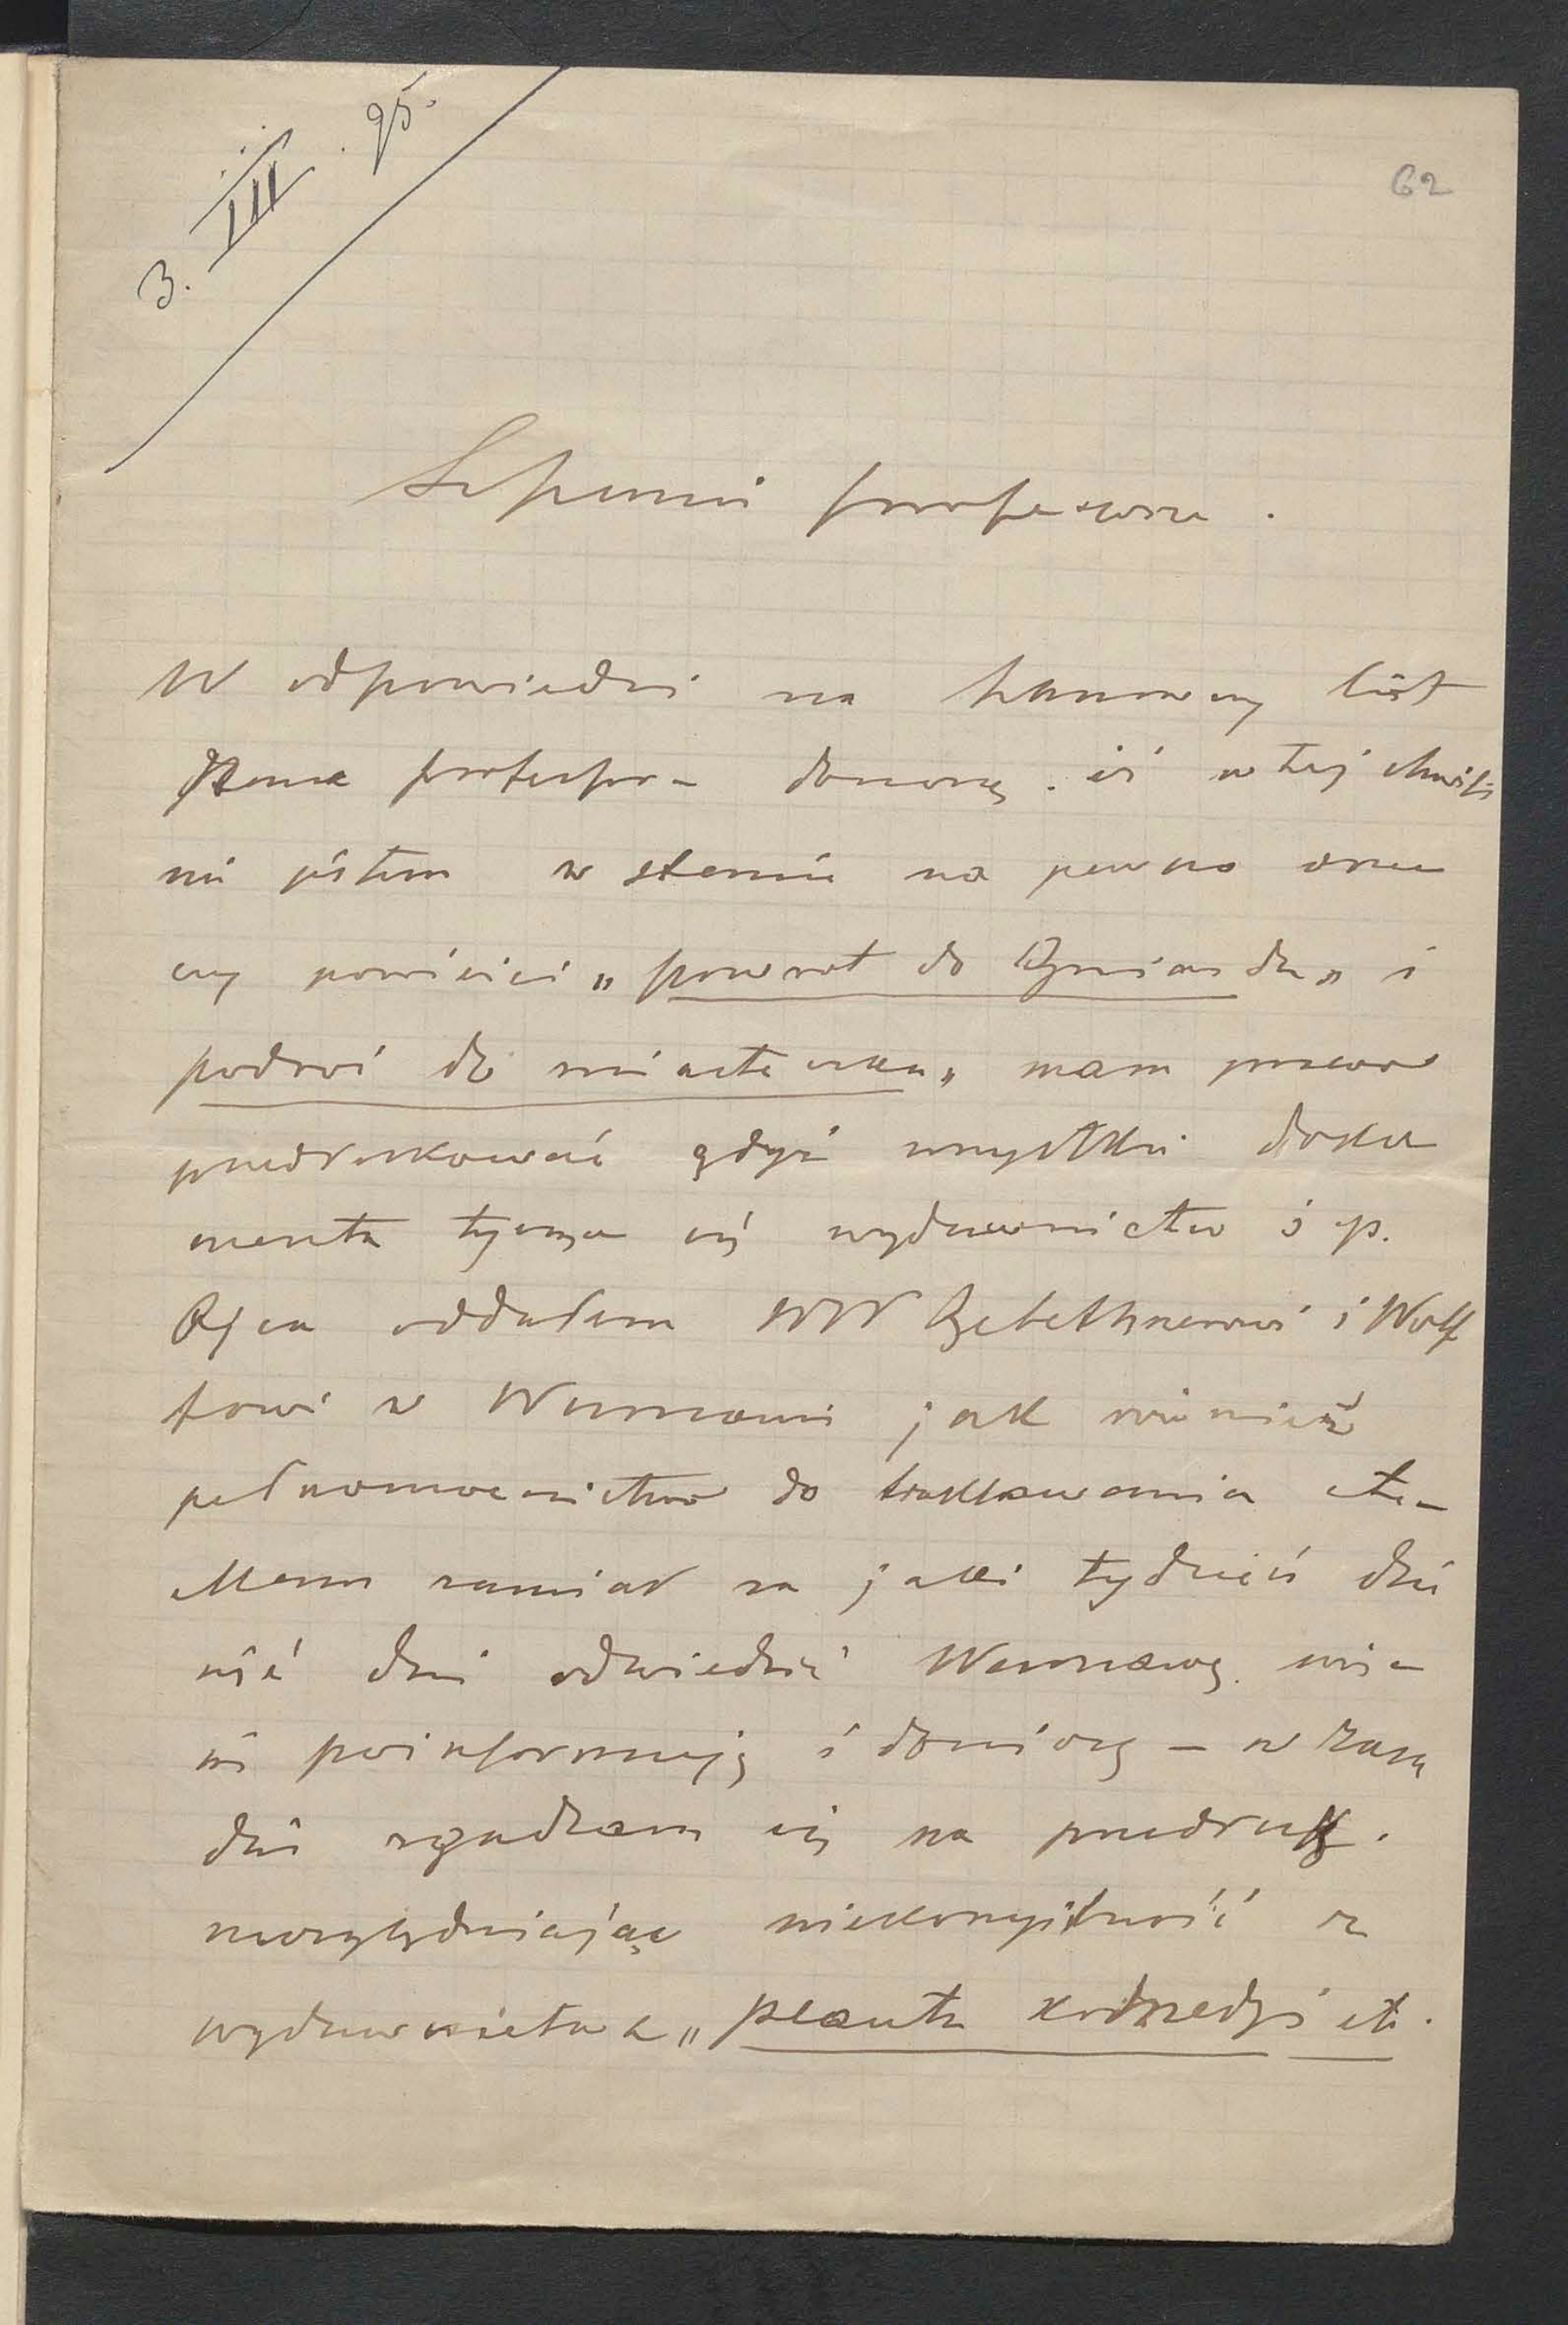 3. III. 95.
62
Sz panie profesorze.
W odpowiedzi na szanowny list
Pana profesora donoszę. iż w tej chwili
nie jestem w stanie na pewno orzec
czy powieści „powrot do Gniazda„ i
podroż do miasteczka„ mam prawo
przedrukować gdyż wszystkie doku
menta tyczące się wydawnictw ś p.
Ojca oddałem WW Gebethnerowi i Wolf
fowi w Warszawie jak również
pełnomocnictwo do traktowania etc –
Mam zamiar za jakie tydzień dzie
sięć dni odwiedzić Warszawę. więc
się poinformuję i doniosę – w zasa
dzie zgadzam się na przedruk.
uwzględniając niekorzystność z
wydawnictwa „ Plauta komedyi etc.